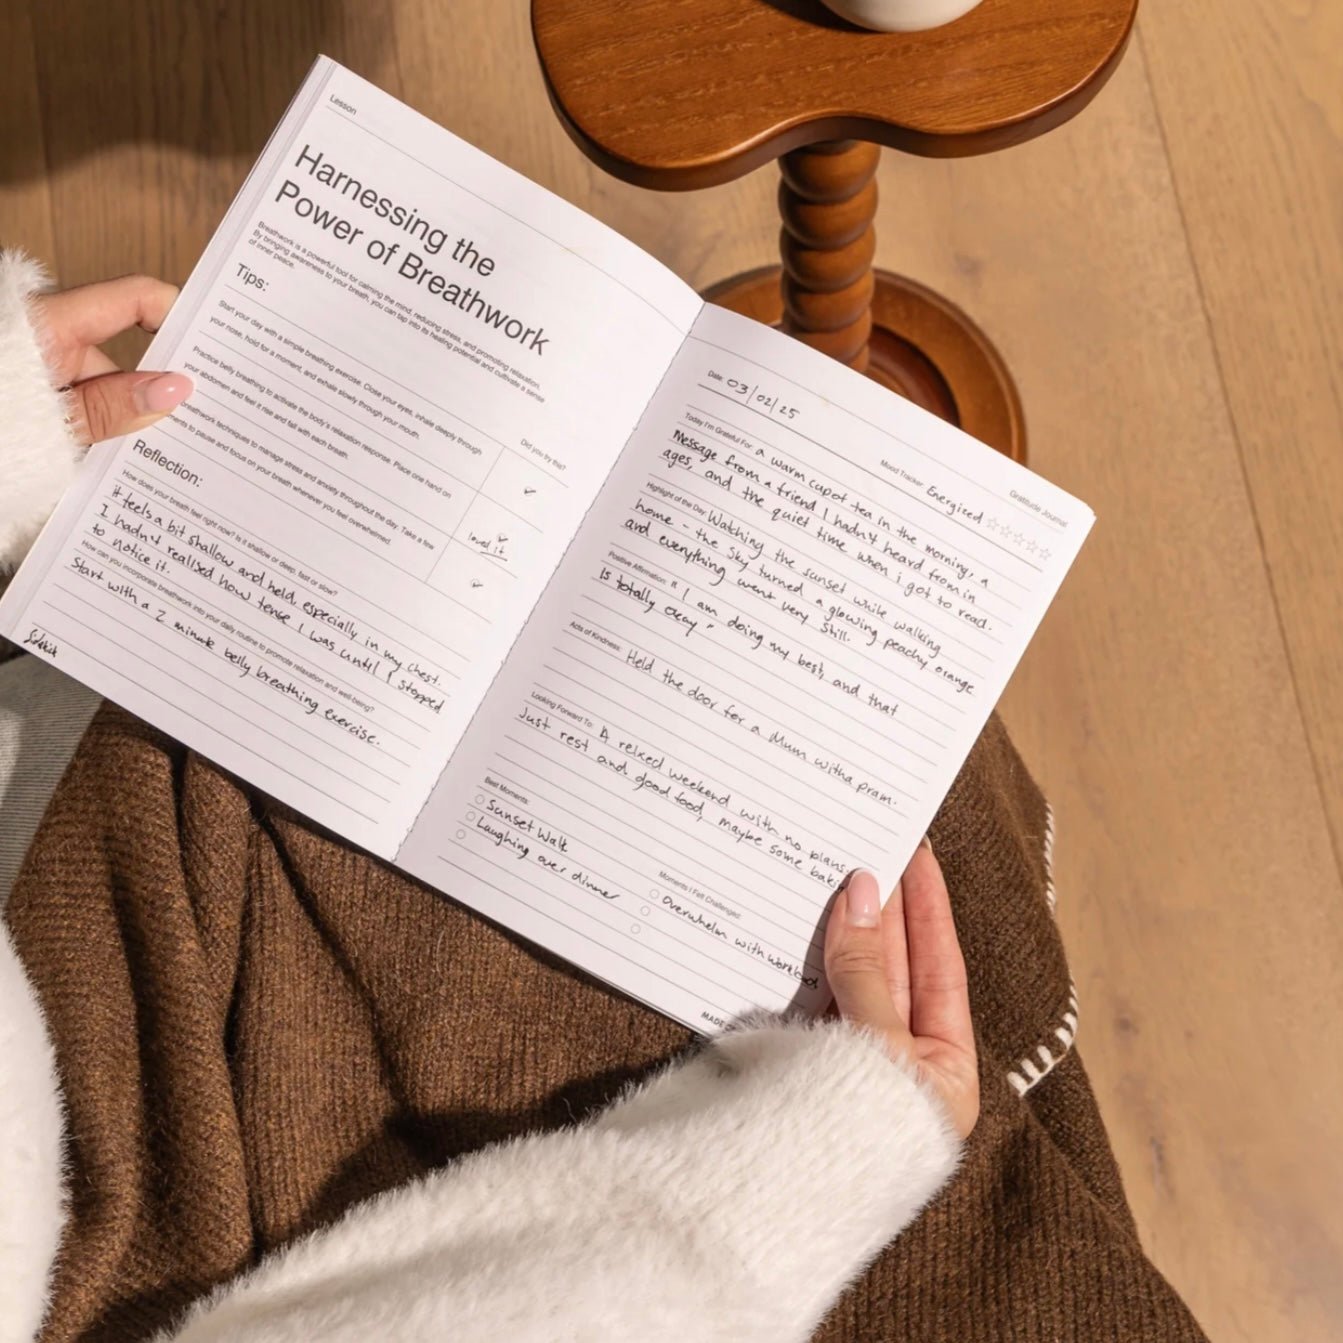 Lesson
Harnessing the
Power of Breathwork
Breathwork is a powerful tool for calming the mind, reducing stress, and promoting relaxation.
By bringing awareness to your breath, you can tap into its healing potential and cultivate a sense
of inner peace.
Tips:
Did you try this?
Start your day with a simple breathing exercise. Close your eyes, inhale deeply through
your nose, hold for a moment, and exhale slowly through your mouth.
Practice belly breathing to activate the body's relaxation response. Place one hand on
your abdomen and feel it rise and fall with each breath.
loved it
breathwork techniques to manage stress and anxiety throughout the day. Take a few
to pause and focus on your breath whenever you feel overwhelmed.
Reflection:
How does your breath feel right now? Is it shallow or deep, fast or slow?
it feels a bit shallow and held, especially in my chest.
I hadn't realised how tense I was until I stopped
to notice it.
How can you incorporate breathwork into your daily routine to promote relaxation and well-being?
Start with a 2 minute belly breathing exercise.
Gratitude Journal
Date: 03/02/25
Mood Tracker: Energized ☆☆☆☆☆
Today I'm Grateful For: a warm cup of tea in the morning, a
message from a friend I hadn't heard from in
ages, and the quiet time when i got to read.
Highlight of the Day: Watching the sunset while walking
home - the sky turned a glowing peachy orange
and everything went very still.
Positive Affirmation: "I am doing my best, and that
is totally okay"
Acts of Kindness: Held the door for a Mum with a pram.
Looking Forward To: A relxed weekend with no plans.
Just rest and good food, maybe some
Best Moments:
Sunset Walk
Laughing over dinner
Moments I Felt Challenged:
Overwhelm with workload
MADE